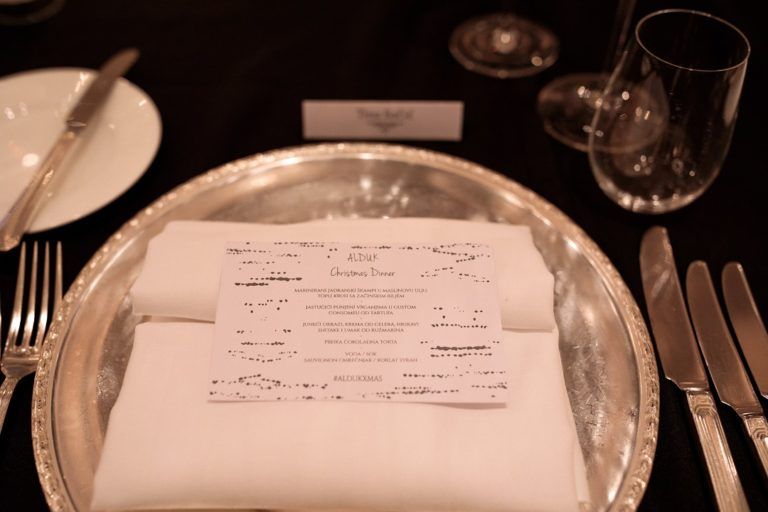 ALDUK
Christmas Dinner
MARINIRANI JADRANSKI ŠKAMPI U MASLINOVU ULJU
TOPLI KROSI SA ZAČINSKIM BILJEM
JASTUČIĆI PUNJENI VRGANJIMA U GUSTOM
CONSOMEU OD TARTUFA
JUNEĆI OBRAZI, KREMA OD CELERA, HRSKAVI
I UMAK OD RUŽMARINA
PREŠKA ČOKOLADNA TORTA
VODA / SOK
SAUVIGNON / KORLAT SYRAH
#ALDUKXMAS